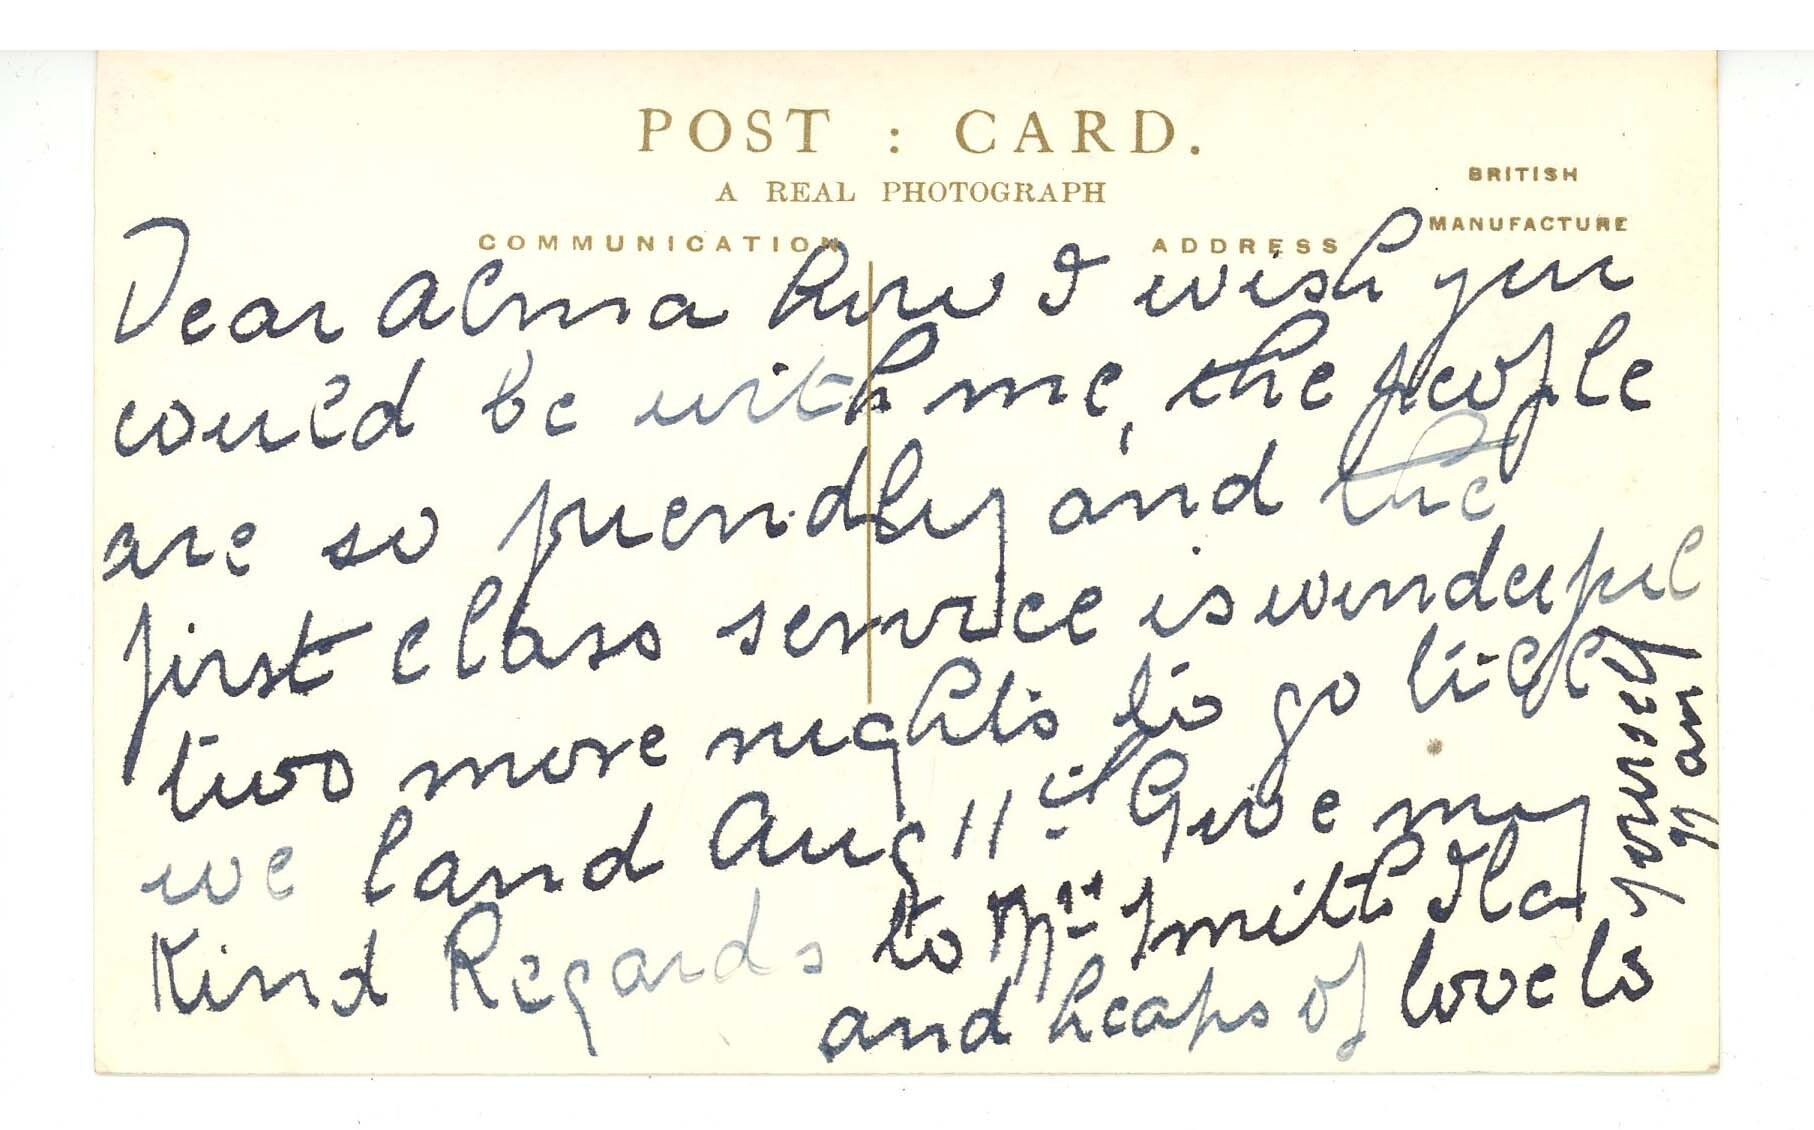 POST : CARD.
A REAL PHOTOGRAPH
BRITISH
MANUFACTURE
COMMUNICATION
ADDRESS
Dear Alma how I wish you
could be with me, the people
are so friendly and the
first class service is wonderful
two more nights to go till
we land Aug 11th Give my
Kind Regards to Mrs Smith
and heaps of love to
yourself